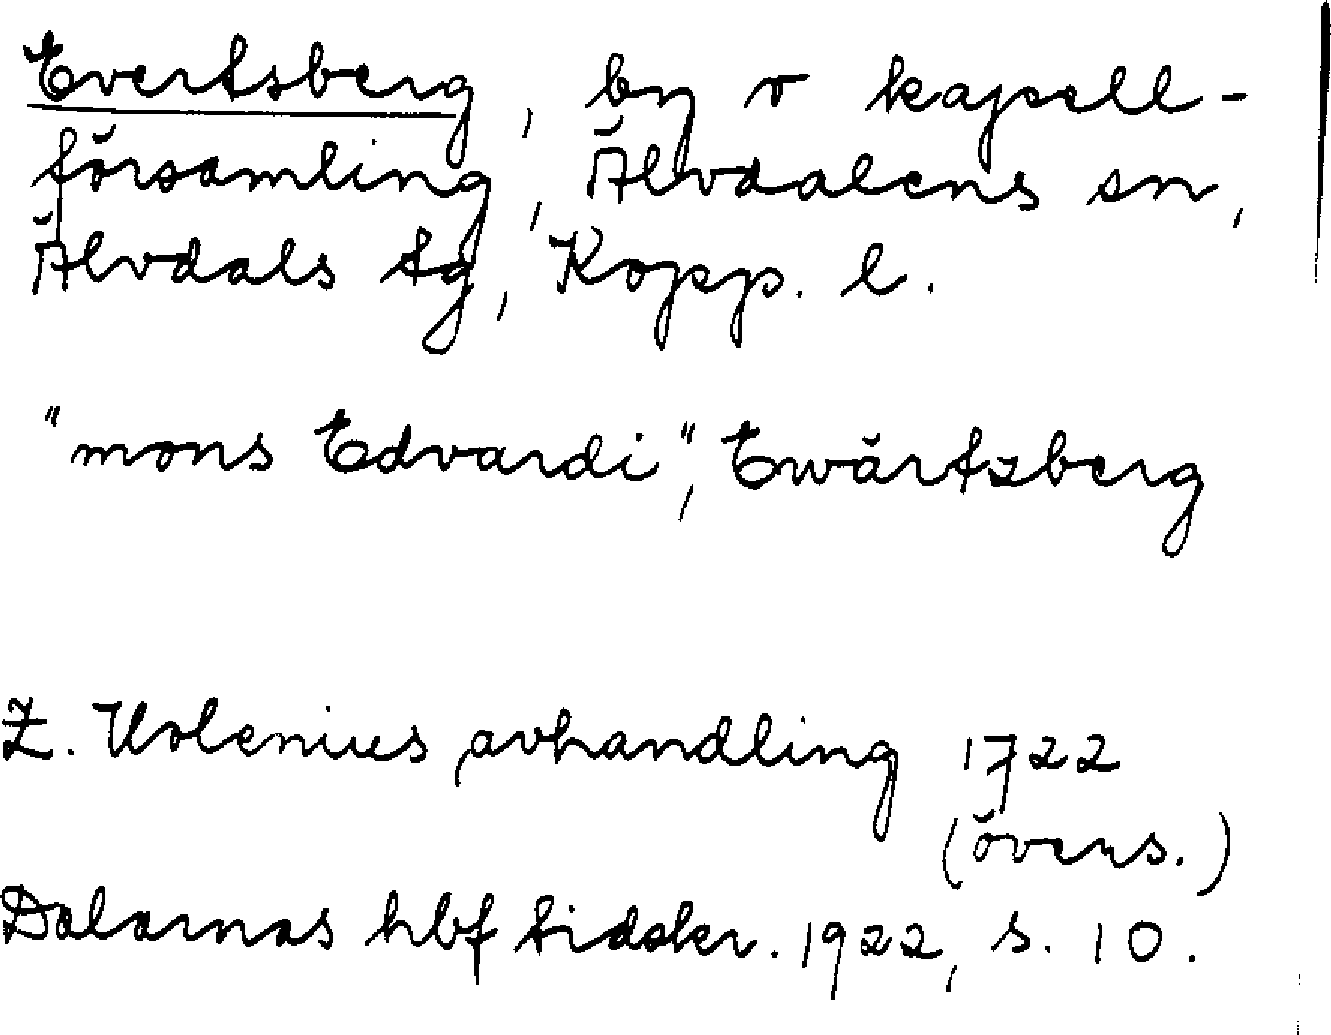 Evertsberg, by o kapell-
församling, Älvdalens sn,
Älvdals tg, Kopp. l.
"mons Edvardi", Ewärtzberg
Z. Holenius avhandling 1722
(övers.)
Dalarnas hbf tidskr. 1922, s. 10.